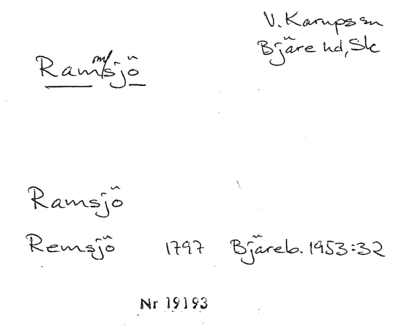 V. Karups sn
Bjäre hd, Sk
Ramsjö
Ramsjö
Remsjö 1797 Bjäreb. 1953:32
Nr 19193